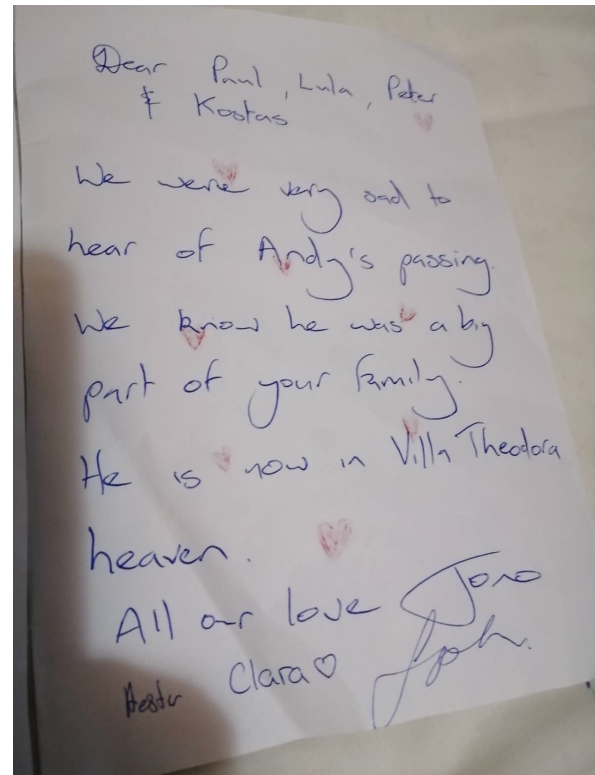 Dear Paul, Lula, Peter
& Kostas
We were very sad to
hear of Andy's passing.
We know he was a big
part of your family.
He is now in Villa Theodora
heaven.
All our love Jono
Clara♡